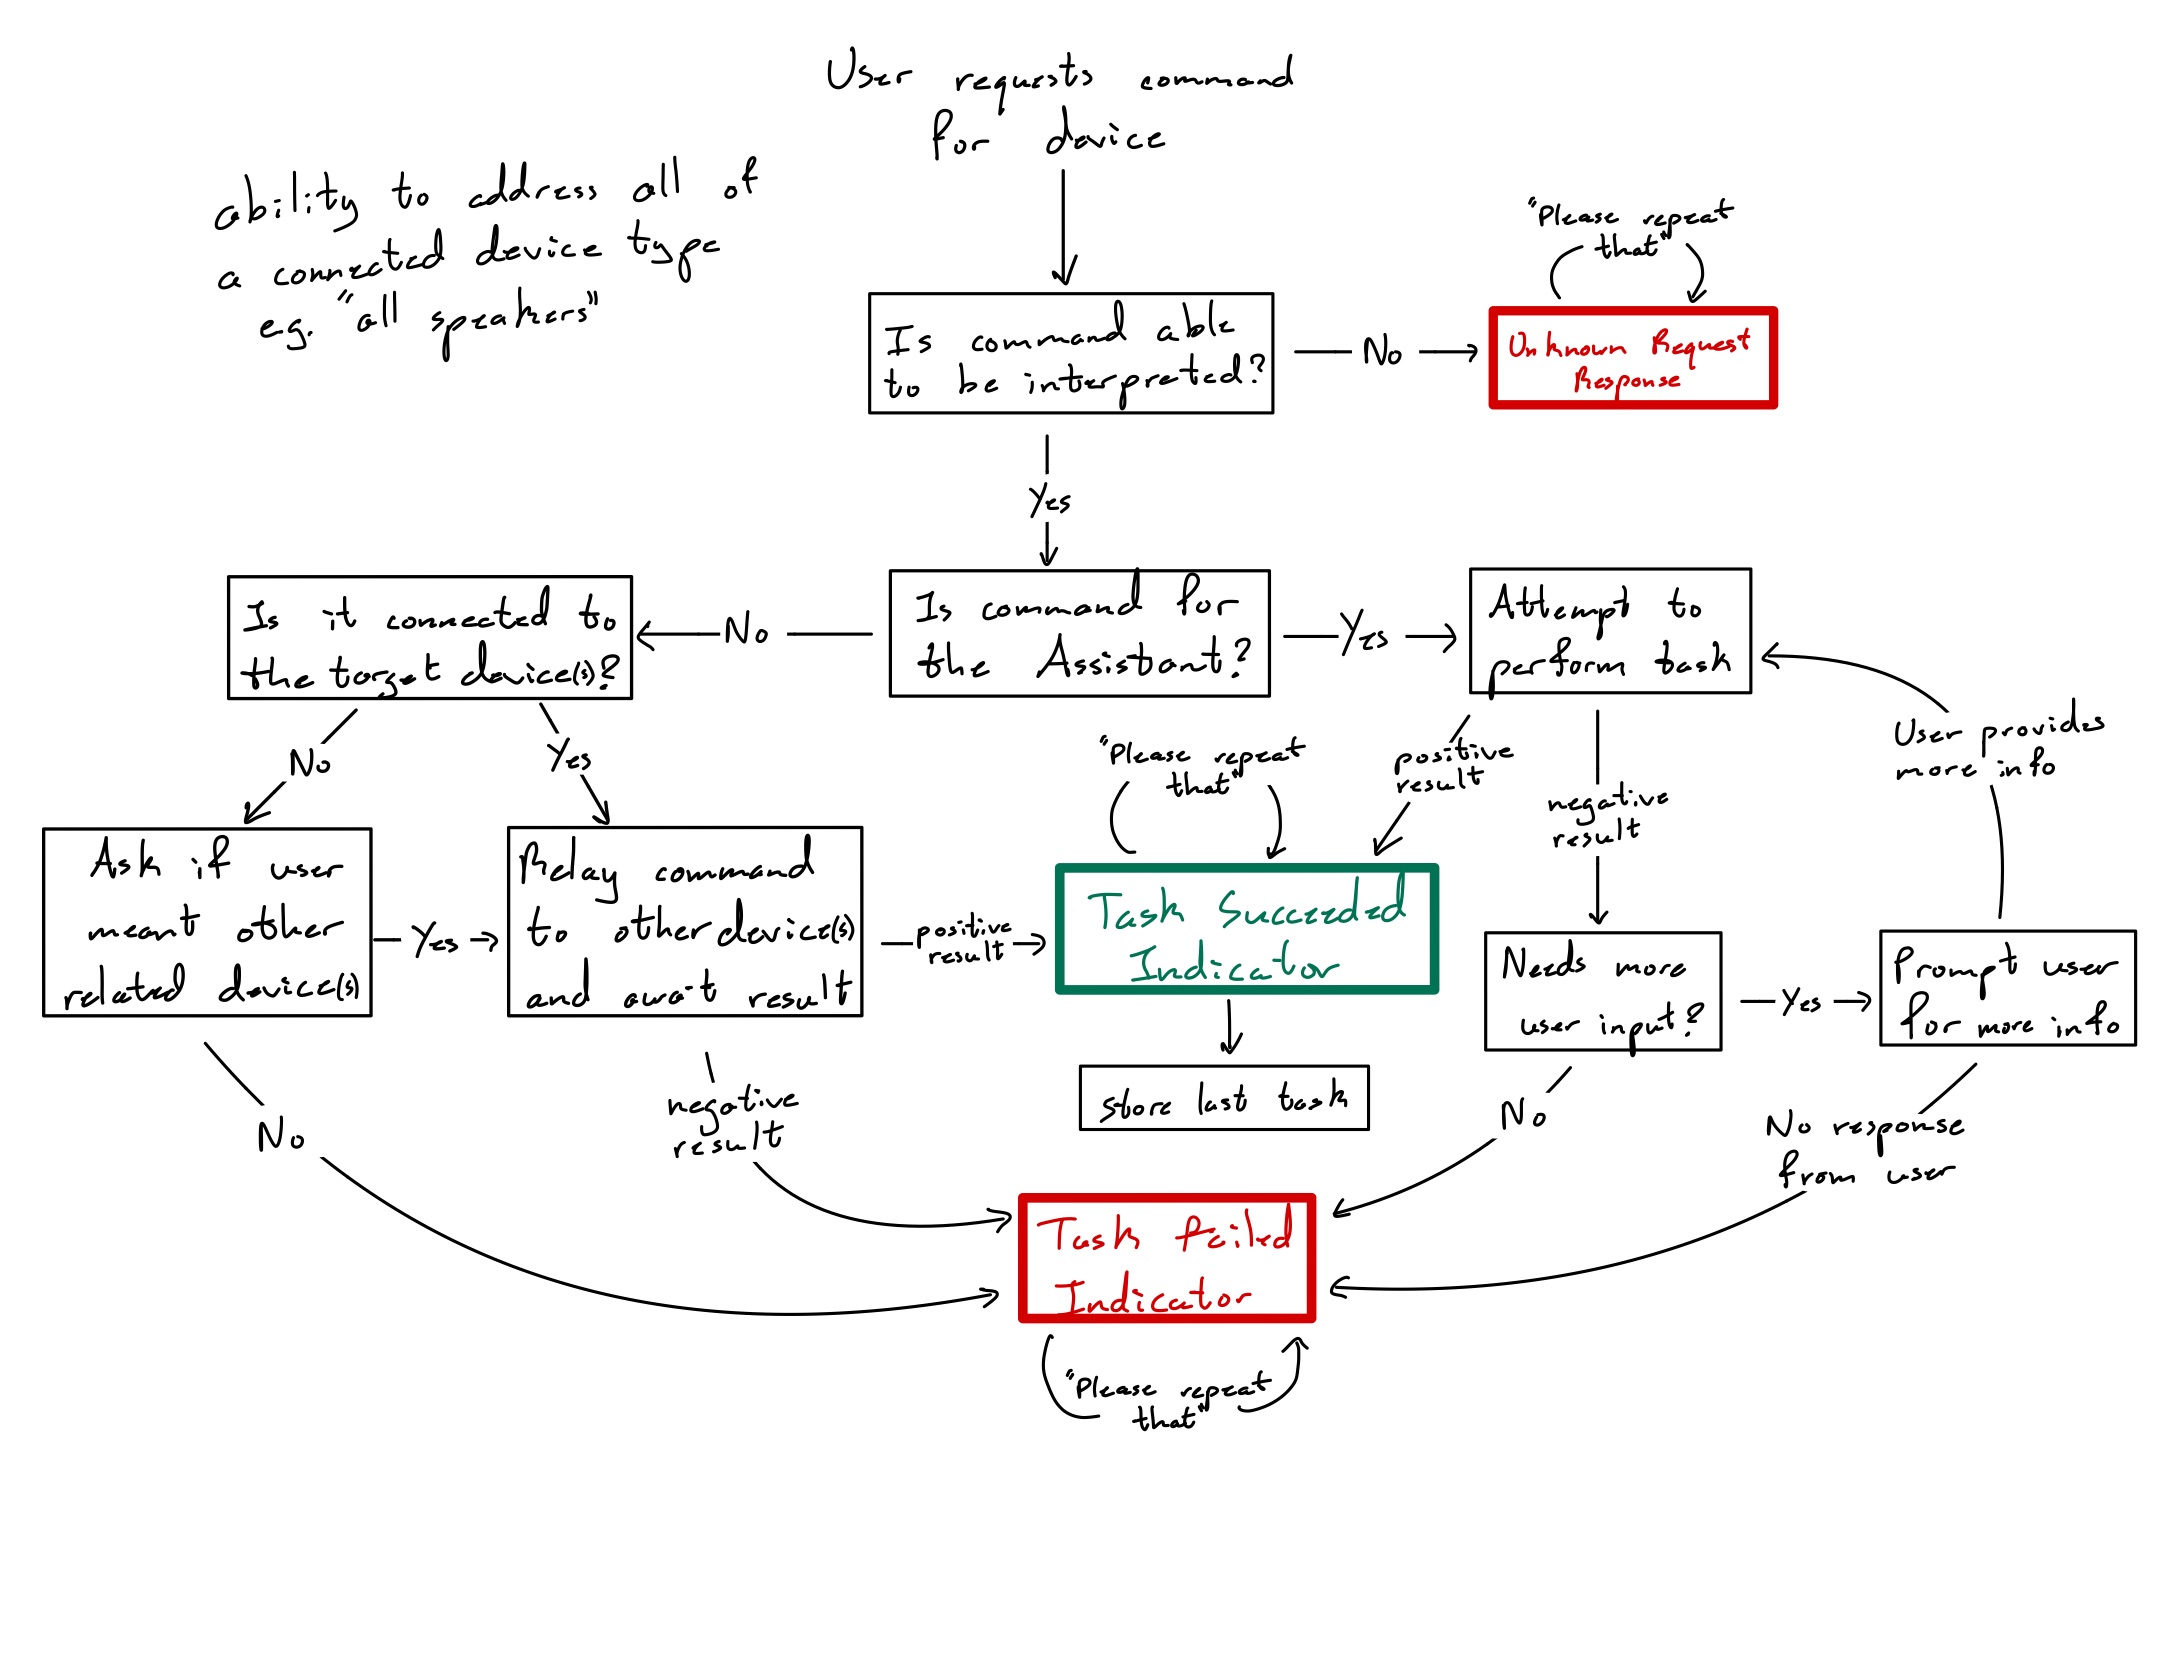 User requests command
for device
ability to address all of
a connected device type
eg. "all speakers"
"Please repeat
that"
Is command able
to be interpreted?
No
Unknown Request
Response
Yes
Is it connected to
the target device(s)?
No
Is command for
the Assistant?
Yes
Attempt to
perform task
No
Yes
"Please repeat
that"
positive
result
negative
result
User provides
more info
Ask if user
meant other
related device(s)
Yes
Relay command
to other device(s)
and await result
positive
result
Task Succeeded
Indicator
Needs more
user input?
Yes
Prompt user
for more info
store last task
No
negative
result
No
No response
from user
Task failed
Indicator
"Please repeat
that"